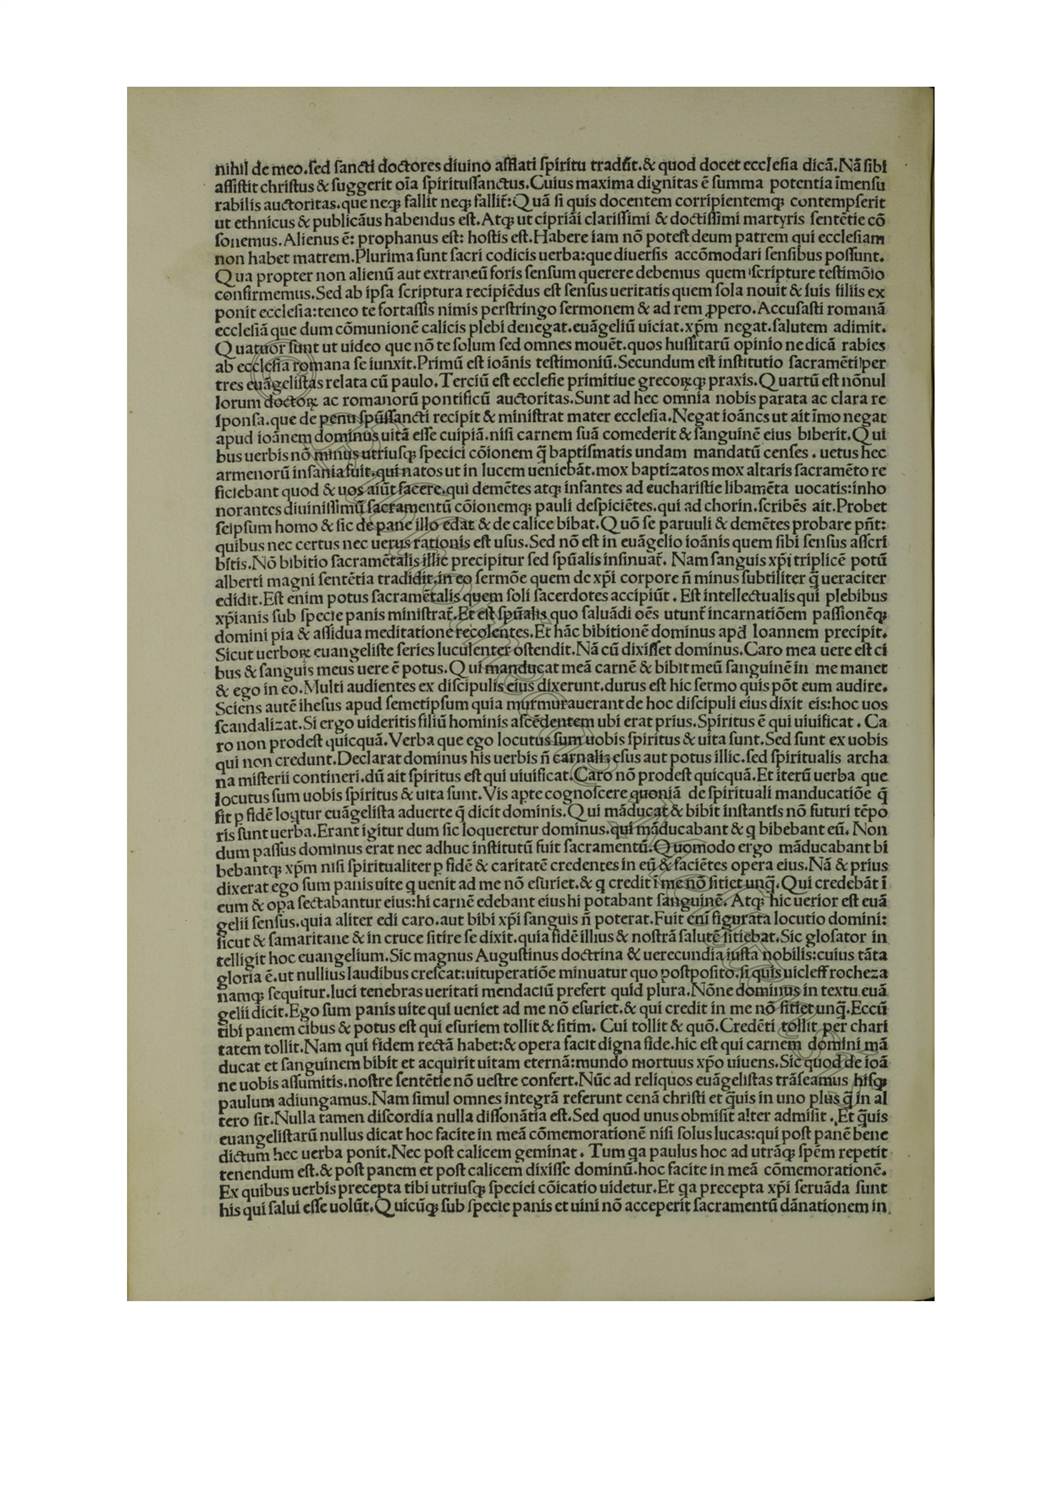 nihil de meo.sed sancti doctores diuino afflati spiritu tradũt.& quod docet ecclesia dicã.Nã sibi
assistit christus & suggerit oĩa spiritussanctus.Cuius maxima dignitas ẽ summa potentia ĩmensu
rabilis auctoritas.que neqꝫ fallit neqꝫ fallit᷑:Quã si quis docentem corripientemqꝫ contempserit
ut ethnicus & publicãus habendus est.Atqꝫ ut cipriãi clarissimi & doctissimi martyris sentẽtie cõ
sonemus.Alienus ẽ: prophanus est: hostis est.Habere iam nõ potest deum patrem qui ecclesiam
non habet matrem.Plurima sunt sacri codicis uerba:que diuersis accõmodari sensibus possunt.
Qua propter non alienũ aut extraneũ foris sensum querere debemus quem scripture testimõio
confirmemus.Sed ab ipsa scriptura recipiẽdus est sensus ueritatis quem sola nouit & suis filiis ex
ponit ecclesia:teneo te fortassis nimis perstringo sermonem & ad rem ꝓpero.Accusasti romanã
ecclesiã que dum cõmunionẽ calicis plebi denegat.euãgeliũ uiciat.xp̃m negat.salutem adimit.
Quatuor sunt ut uideo que nõ te solum sed omnes mouẽt.quos hussitarũ opinio ne dicã rabies
ab ecclesia romana se iunxit.Primũ est ioãnis testimoniũ.Secundum est institutio sacramẽti per
tres euãgelistas relata cũ paulo.Terciũ est ecclesie primitiue grecoꝝqꝫ praxis.Quartũ est nõnul
lorum doctoꝝ ac romanorũ pontificũ auctoritas.Sunt ad hec omnia nobis parata ac clara re
sponsa.que de penu sp̃ussancti recipit & ministrat mater ecclesia.Negat ioãnes ut ait ĩmo negat
apud ioãnem dominus uitã esse cuipiã.nisi carnem suã comederit & sanguinẽ eius biberit.Qui
bus uerbis nõ minus utriusqꝫ speciei cõionem q̃ baptismatis undam mandatũ censes . uetus hec
armenorũ insania fuit.qui natos ut in lucem ueniebãt.mox baptizatos mox altaris sacramẽto re
ficiebant quod & uos aiũt facere.qui demẽtes atqꝫ infantes ad eucharistie libamẽta uocatis:inho
norantes diuinissimũ sacramentũ cõionemqꝫ pauli despiciẽtes.qui ad chorin.scribẽs ait.Probet
seipsum homo & sic de pane illo edat & de calice bibat.Quõ se paruuli & demẽtes probare pñt:
quibus nec certus nec uerus rationis est usus.Sed nõ est in euãgelio ioãnis quem sibi sensus asscri
bitis.Nõ bibitio sacramẽtalis illic precipitur sed sp̃ualis insinuat᷑. Nam sanguis xp̃i triplicẽ potũ
alberti magni sentẽtia tradidit.in eo sermõe quem de xp̃i corpore ñ minus subtiliter q̃ ueraciter
edidit.Est enim potus sacramẽtalis quem soli sacerdotes accipiũt . Est intellectualis qui plebibus
xp̃ianis sub specie panis ministrat᷑.Et est sp̃ualis quo saluãdi oẽs utunt᷑ incarnatiõem passionẽqꝫ
domini pia & assidua meditatione recolentes.Et hãc bibitionẽ dominus apd̃ Ioannem precipit.
Sicut uerboꝝ euangeliste series luculenter ostendit.Nã cũ dixisset dominus.Caro mea uere est ci
bus & sanguis meus uere ẽ potus.Qui manducat meã carnẽ & bibit meũ sanguinẽ in me manet
& ego in eo.Multi audientes ex discipulis eius dixerunt.durus est hic sermo quis põt eum audire.
Sciens autẽ ihesus apud semetipsum quia murmurauerant de hoc discipuli eius dixit eis:hoc uos
scandalizat.Si ergo uideritis filiũ hominis ascẽdentem ubi erat prius.Spiritus ẽ qui uiuificat . Ca
ro non prodest quicquã.Verba que ego locutus sum uobis spiritus & uita sunt.Sed sunt ex uobis
qui non credunt.Declarat dominus his uerbis ñ carnalis esus aut potus illic.sed spiritualis archa
na misterii contineri.dũ ait spiritus est qui uiuificat.Caro nõ prodest quicquã.Et iterũ uerba que
locutus sum uobis spiritus & uita sunt.Vis apte cognoscere quoniã de spirituali manducatiõe q̃
fit ꝑ fidẽ loq̃tur euãgelista aduerte q̃ dicit dominis.Qui mãducat & bibit instantis nõ futuri tẽpo
ris sunt uerba.Erant igitur dum sic loqueretur dominus.qui mãducabant & q bibebant eũ. Non
dum passus dominus erat nec adhuc institutũ fuit sacramentũ.Quomodo ergo mãducabant bi
bebantqꝫ xp̃m nisi spiritualiter ꝑ fidẽ & caritatẽ credentes in eũ & faciẽtes opera eius.Nã & prius
dixerat ego sum panis uite q uenit ad me nõ esuriet.& q credit ĩ me nõ sitiet unq̃.Qui credebãt ĩ
eum & oꝑa sectabantur eius:hi carnẽ edebant eius hi potabant sanguinẽ. Atqꝫ hic uerior est euã
gelii sensus.quia aliter edi caro.aut bibi xp̃i sanguis ñ poterat.Fuit eni᷑ figurata locutio domini:
sicut & samaritane & in cruce sitire se dixit.quia fidẽ illius & nostrã salutẽ sitiebat.Sic glosator in
telligit hoc euangelium.Sic magnus Augustinus doctrina & uerecundia iusta nobilis:cuius tãta
gloria ẽ.ut nullius laudibus crescat:uituperatiõe minuatur quo postposito.si quis uicleff rocheza
namqꝫ sequitur.luci tenebras ueritati mendaciũ prefert quid plura.Nõne dominus in textu euã
gelii dicit.Ego sum panis uite qui ueniet ad me nõ esuriet.& qui credit in me nõ sitiet unq̃.Eccũ
tibi panem cibus & potus est qui esuriem tollit & sitim. Cui tollit & quõ.Credẽti tollit per chari
tatem tollit.Nam qui fidem rectã habet:& opera facit digna fide.hic est qui carnem domini mã
ducat et sanguinem bibit et acquirit uitam eternã:mundo mortuus xp̃o uiuens.Sic quod de ioã
ne uobis assumitis.nostre sentẽtie nõ uestre confert.Nũc ad reliquos euãgelistas trãseamus hisqꝫ
paulum adiungamus.Nam simul omnes integrã referunt cenã christi et q̃uis in uno plus q̃ in al
tero sit.Nulla tamen discordia nulla dissonãtia est.Sed quod unus obmisit alter admisit . Et q̃uis
euangelistarũ nullus dicat hoc facite in meã cõmemorationẽ nisi solus lucas:qui post panẽ bene
dictum hec uerba ponit.Nec post calicem geminat . Tum qa paulus hoc ad utrãqꝫ spẽm repetit
tenendum est.& post panem et post calicem dixisse dominũ.hoc facite in meã cõmemorationẽ.
Ex quibus uerbis precepta tibi utriusqꝫ speciei cõicatio uidetur.Et qa precepta xp̃i seruãda sunt
his qui salui esse uolũt.Quicũqꝫ sub specie panis et uini nõ acceperit sacramentũ dãnationem in